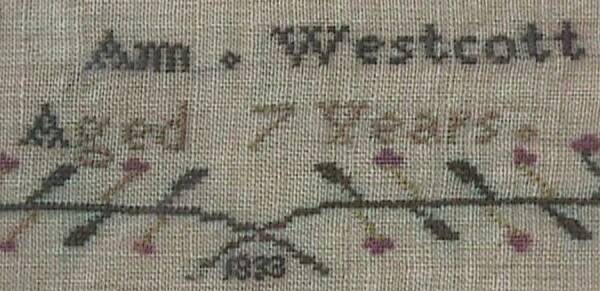 Ann . Westcott
Aged 7 Years.
1833